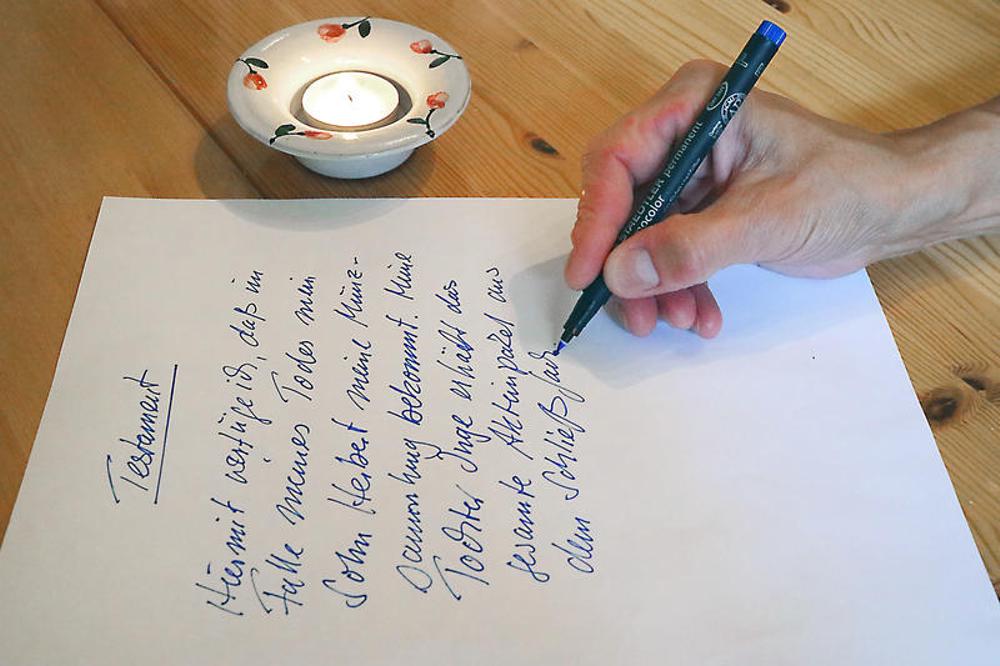 Testament
Hiermit verfüge ich, daß im
Falle meines Todes mein
Sohn Herbert meine Münz-
Sammlung bekommt. Meine
Tochter Inge erhält das
gesamte Aktienpaket aus
dem Schließfach
STAEDTLER permanent